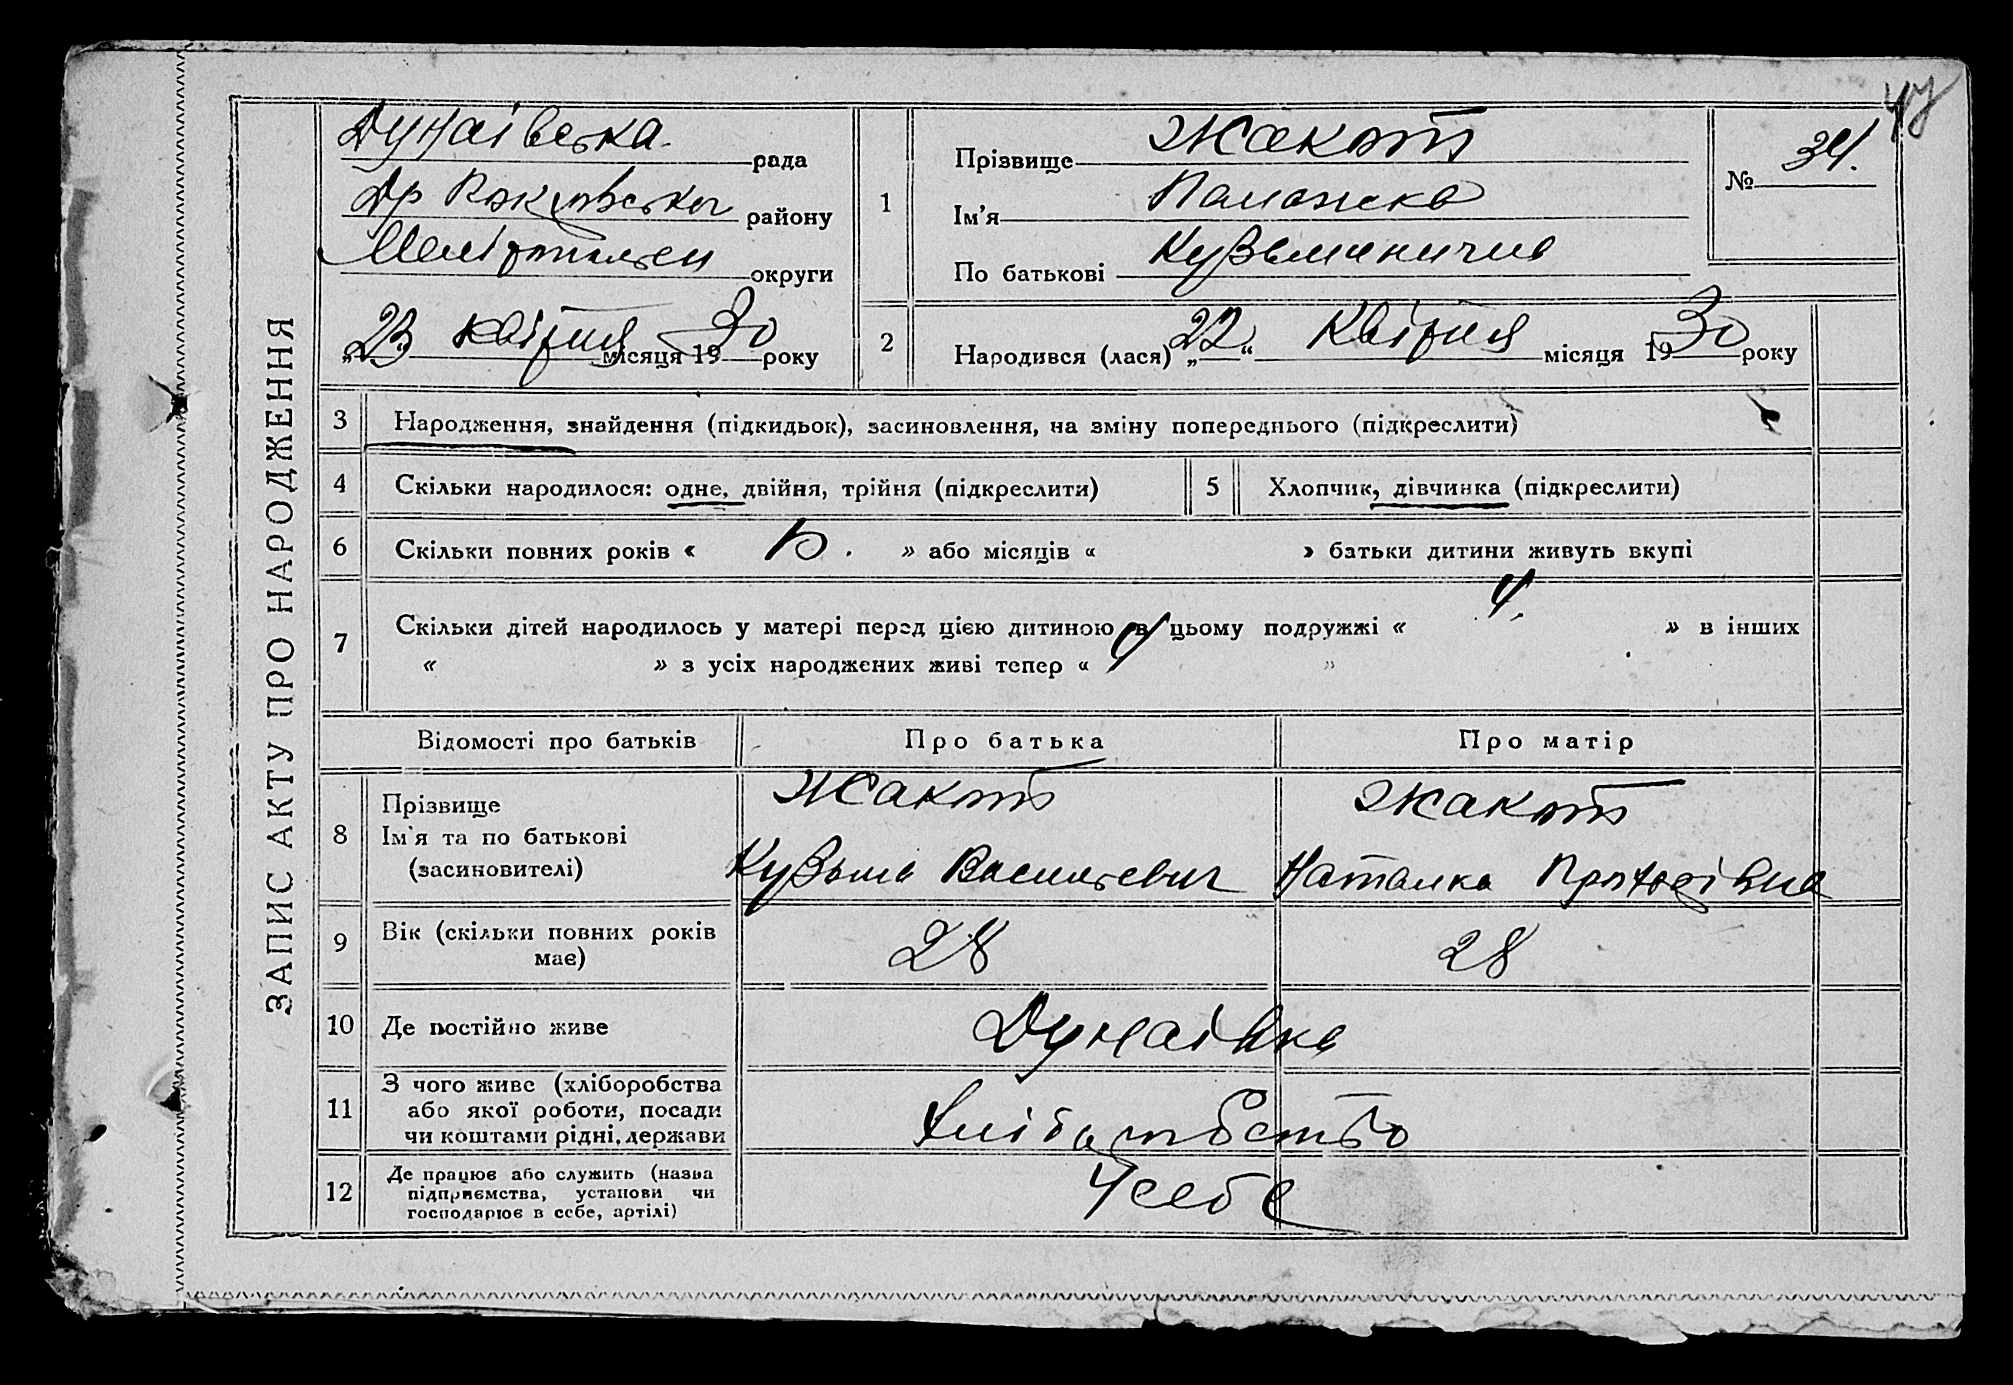 47
ЗАПИС АКТУ ПРО НАРОДЖЕННЯ
Дунаівська рада
району
округи
„23 квітня місяця 1930 року
1
Прізвище Жакот
Ім'я
По батькові
№ 34.
2
Народився (лася) „22“ Квітня місяця 1930 року
3 Народження, знайдення (підкидьок), засиновлення, на зміну попереднього (підкреслити)
4 Скільки народилося: одне, двійня, трійня (підкреслити) 5 Хлопчик, дівчинка (підкреслити)
6 Скільки повних років « » або місяців « » батьки дитини живуть вкупі
7 Скільки дітей народилось у матері перед цією дитиною в цьому подружжі « 4. » в інших
« » з усіх народжених живі тепер « 4 »
Відомості про батьків Про батька Про матір
8 Прізвище
Ім'я та по батькові
(засиновителі)
Жакот
Кузьма Васильевич
Жакот
Наталка
9 Вік (скільки повних років
має)
28 28
10 Де постійно живе Дунаівка
11 З чого живе (хліборобства
або якої роботи, посади
чи коштами рідні, держави
Хліборобство
12 Де працює або служить (назва
підприємства, установи чи
господарює в себе, артілі)
У себе